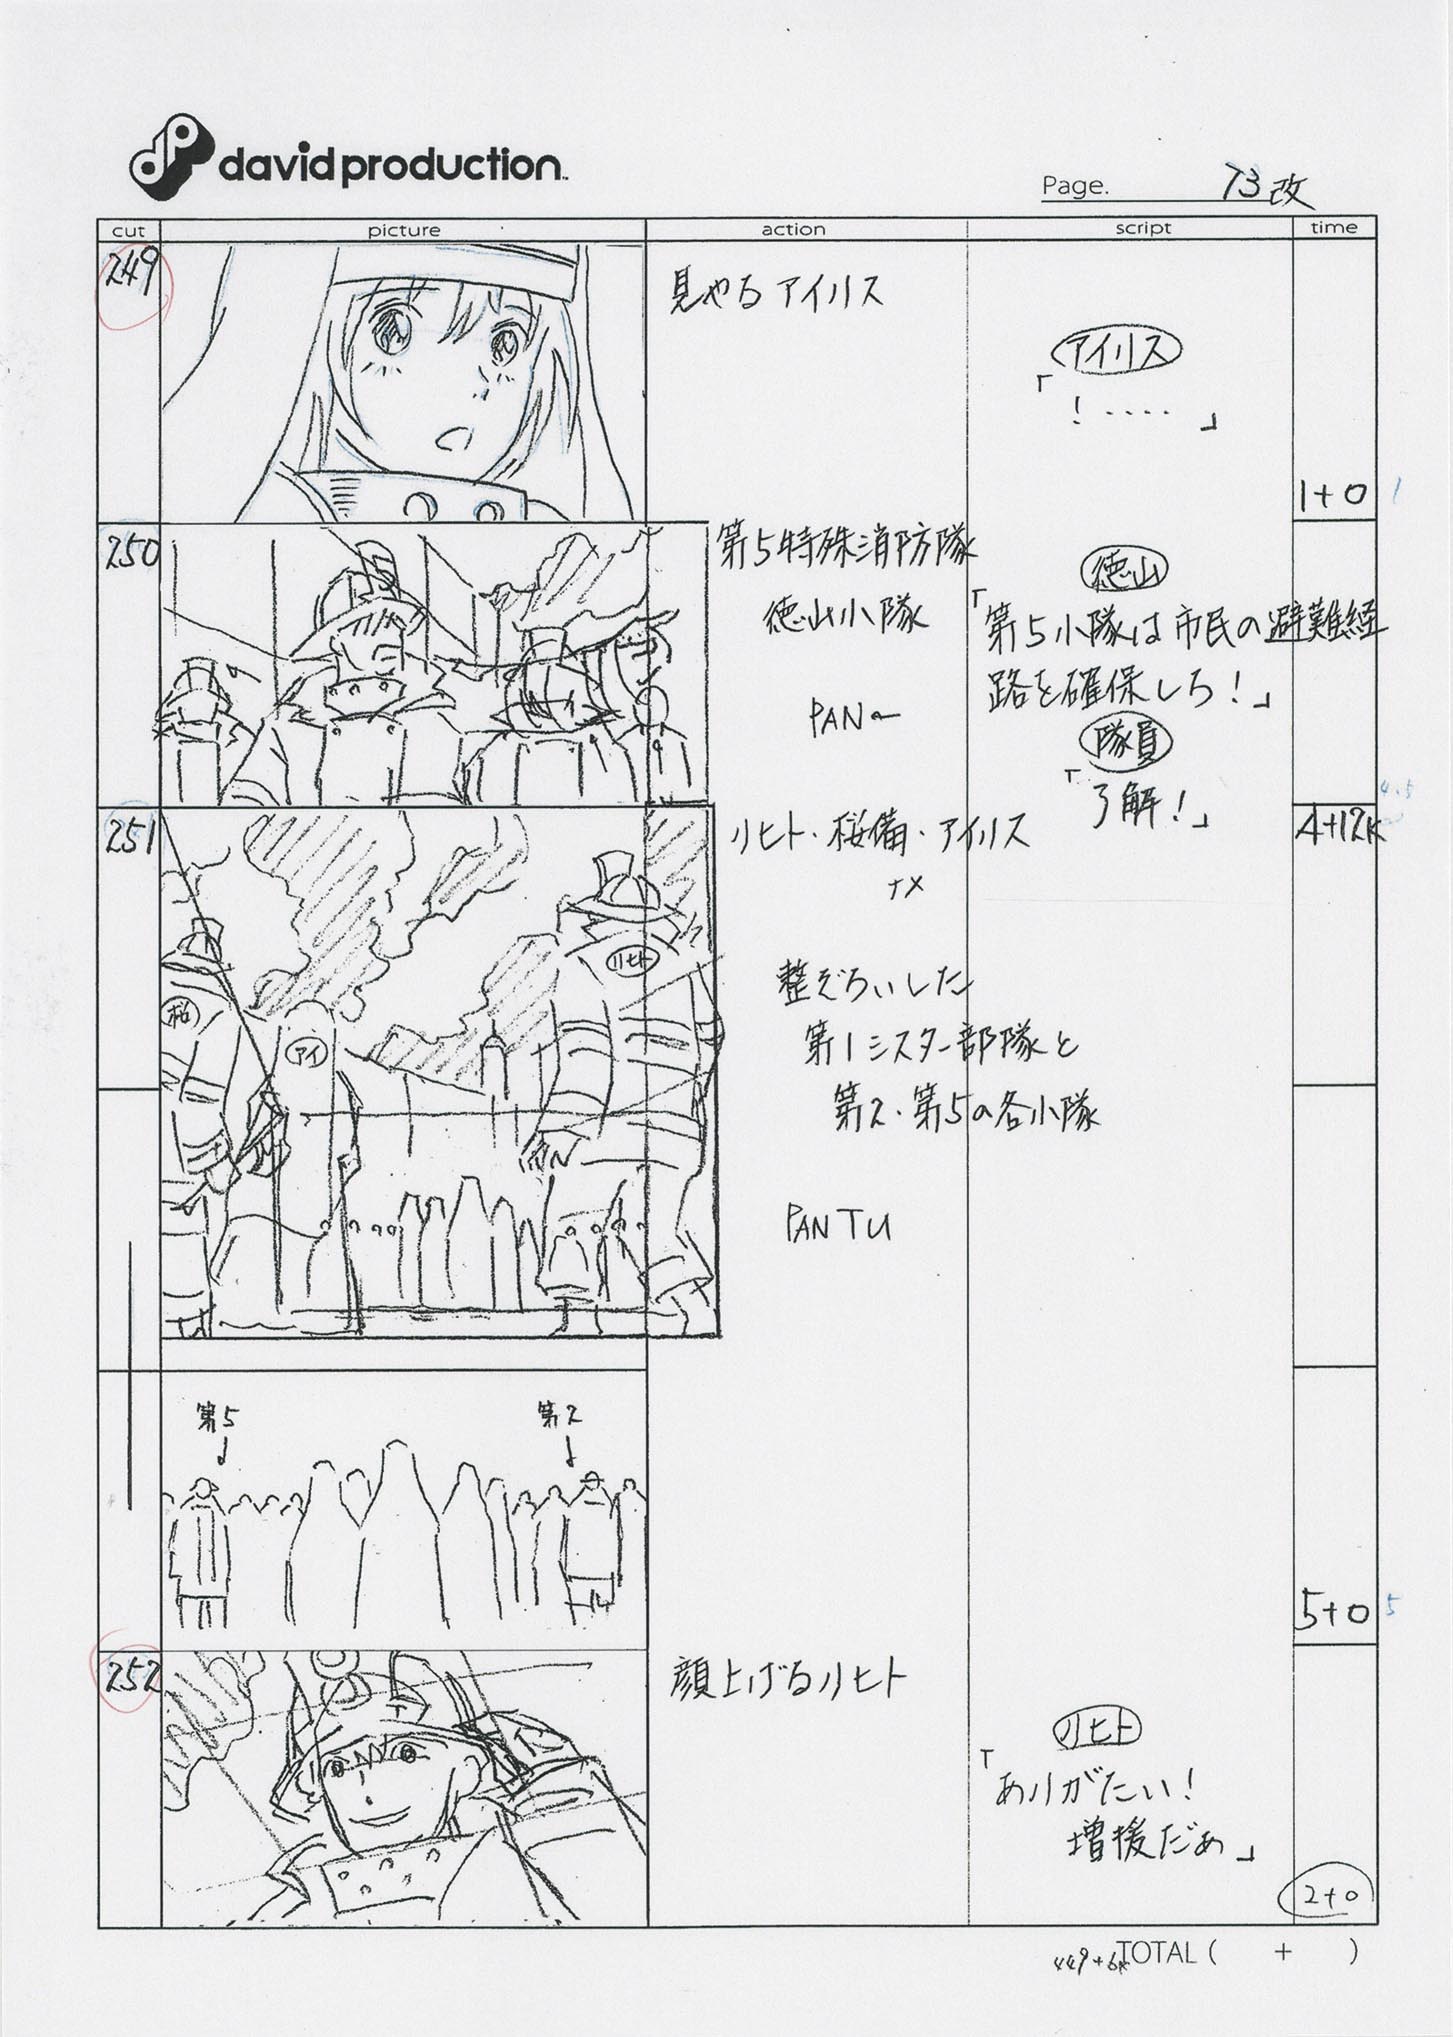 davidproduction
Page. 73改
cut picture action script time
249
見やるアイリス
アイリス
「！‥‥」
1+0 1
250
第5特殊消防隊
徳山小隊
PAN
徳山
「第5小隊は市民の避難経
路を確保しろ！」
隊員
「了解！」
4.5
4+12K
251
リヒト・桜備・アイリス
ナメ
リヒト
桜
アイ
整ぞろいした
第1シスター部隊と
第2・第5の各小隊
PAN TU
第5
第2
5+0 5
252
顔上げるリヒト
リヒト
「ありがたい！
増援だぁ」
2+0
449+6K TOTAL ( + )